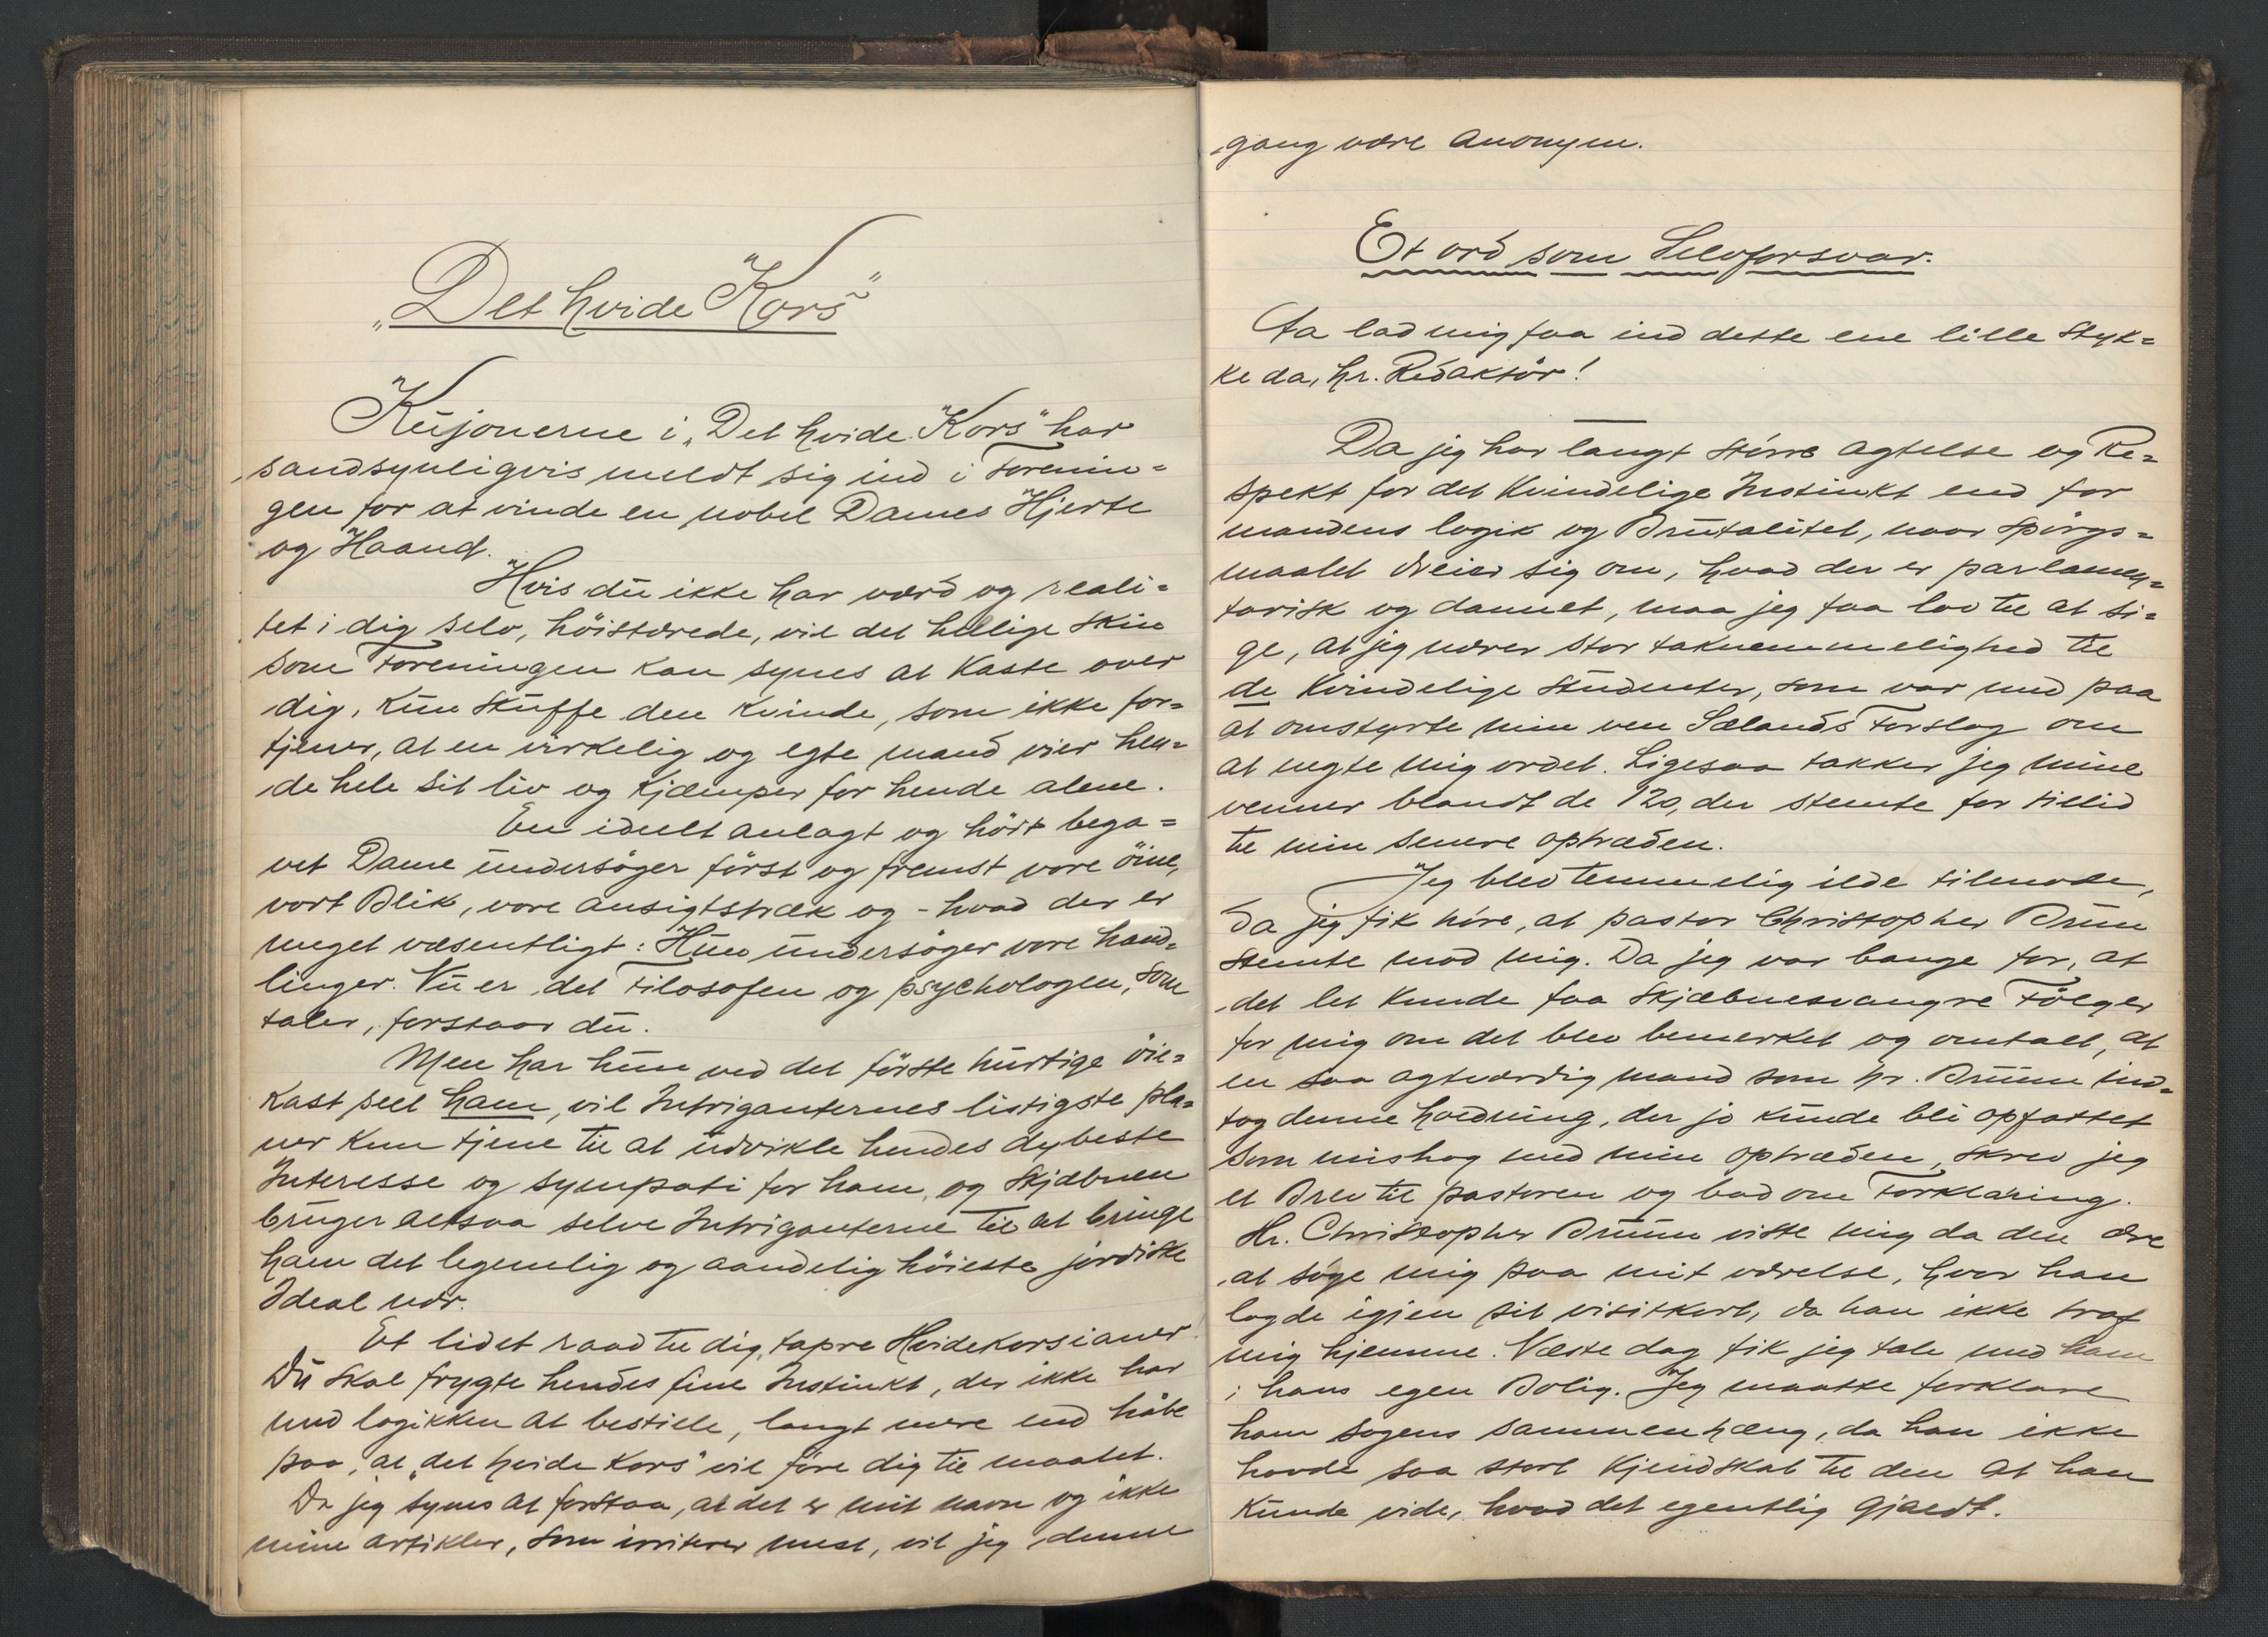 „Det hvide Kors“
Kujonerne i „Det hvide Kors“ har
sandsynligvis meldt sig ind i Forenin=
gen for at vinde en nobel Dames Hjerte
og Haand.
Hvis du ikke har værd og reali=
tet i dig selv, höistærede, vil det hellige Skin
som Foreningen kan synes at kaste over
dig, kun skuffe den kvinde, som ikke for=
tjener, at en virkelig og egte mand vier hen=
de hele sit liv og kjæmper for hende alene.
En ideelt anlagt og höit bega=
vet Dame undersöger först og fremst vore öine,
vort Blik, vore ansigtstræk og - hvad der er
meget væsentligt: Hun undersöger vore hand=
linger. Nu er det Filosofen og psychologen, som
taler, forstaar du.
Men har hun ved det förste hurtige öie=
kast seet ham, vil Intriganternes listigste pla=
ner kun tjene til at udvikle hendes dybeste
Interesse og sympati for ham, og Skjæbnen
bruger altsaa selve Intriganterne til at bringe
ham det legemlig og aandelig höieste jordiske
Ideal nær.
Et lidet raad til dig, tapre Hvidekorsianer!
Du skal frygte hendes fine Instinkt, der ikke har
med logikken at bestille, langt mere end håbe
paa, at „det hvide Kors“ vil före dig til maalet.
Da jeg synes at forstaa, at det er mit navn og ikke
mine artikler, som irriterer mest, vil jeg denne
gang være anonym.
Et ord som Selvforsvar.
Aa lad mig faa ind dette ene lille Styk=
ke da, hr. Redaktör!
Da jeg har langt större agtelse og Re=
spekt for det kvindelige Instinkt end for
mandens logik og Brutalitet, naar spörgs=
maalet dreier sig om, hvad der er parlamen=
tarisk og dannet, maa jeg faa lov til at si=
ge, at jeg nærer stor taknemmelighed til
de kvindelige Studenter, som var med paa
at omstyrte min ven Sælands Forslag om
at negte mig ordet. Ligesaa takker jeg mine
venner blandt de 120, der stemte for tillid
til min senere optræden.
Jeg blev temmelig ilde tilmode,
da jeg fik höre, at pastor Christopher Bruun
stemte mod mig. Da jeg var bange for, at
det let kunde faa skjæbnesvangre Fölger
for mig om det blev bemerket og omtalt, at
en saa agtværdig mand som hr. Bruun ind=
tog denne holdning, der jo kunde bli opfattet
som mishag med min optræden, skrev jeg
et Brev til pastoren og bad om Forklaring.
Hr. Christopher Bruun viste mig da den ære
at söge mig paa mit værelse, hvor han
lagde igjen sit visitkort, da han ikke traf
mig hjemme. Næste dag fik jeg tale med ham
i hans egen Bolig. Jeg maatte forklare
ham sagens sammenhæng, da han ikke
havde saa stort kjendskab til den at han
kunde vide, hvad det egentlig gjaldt.